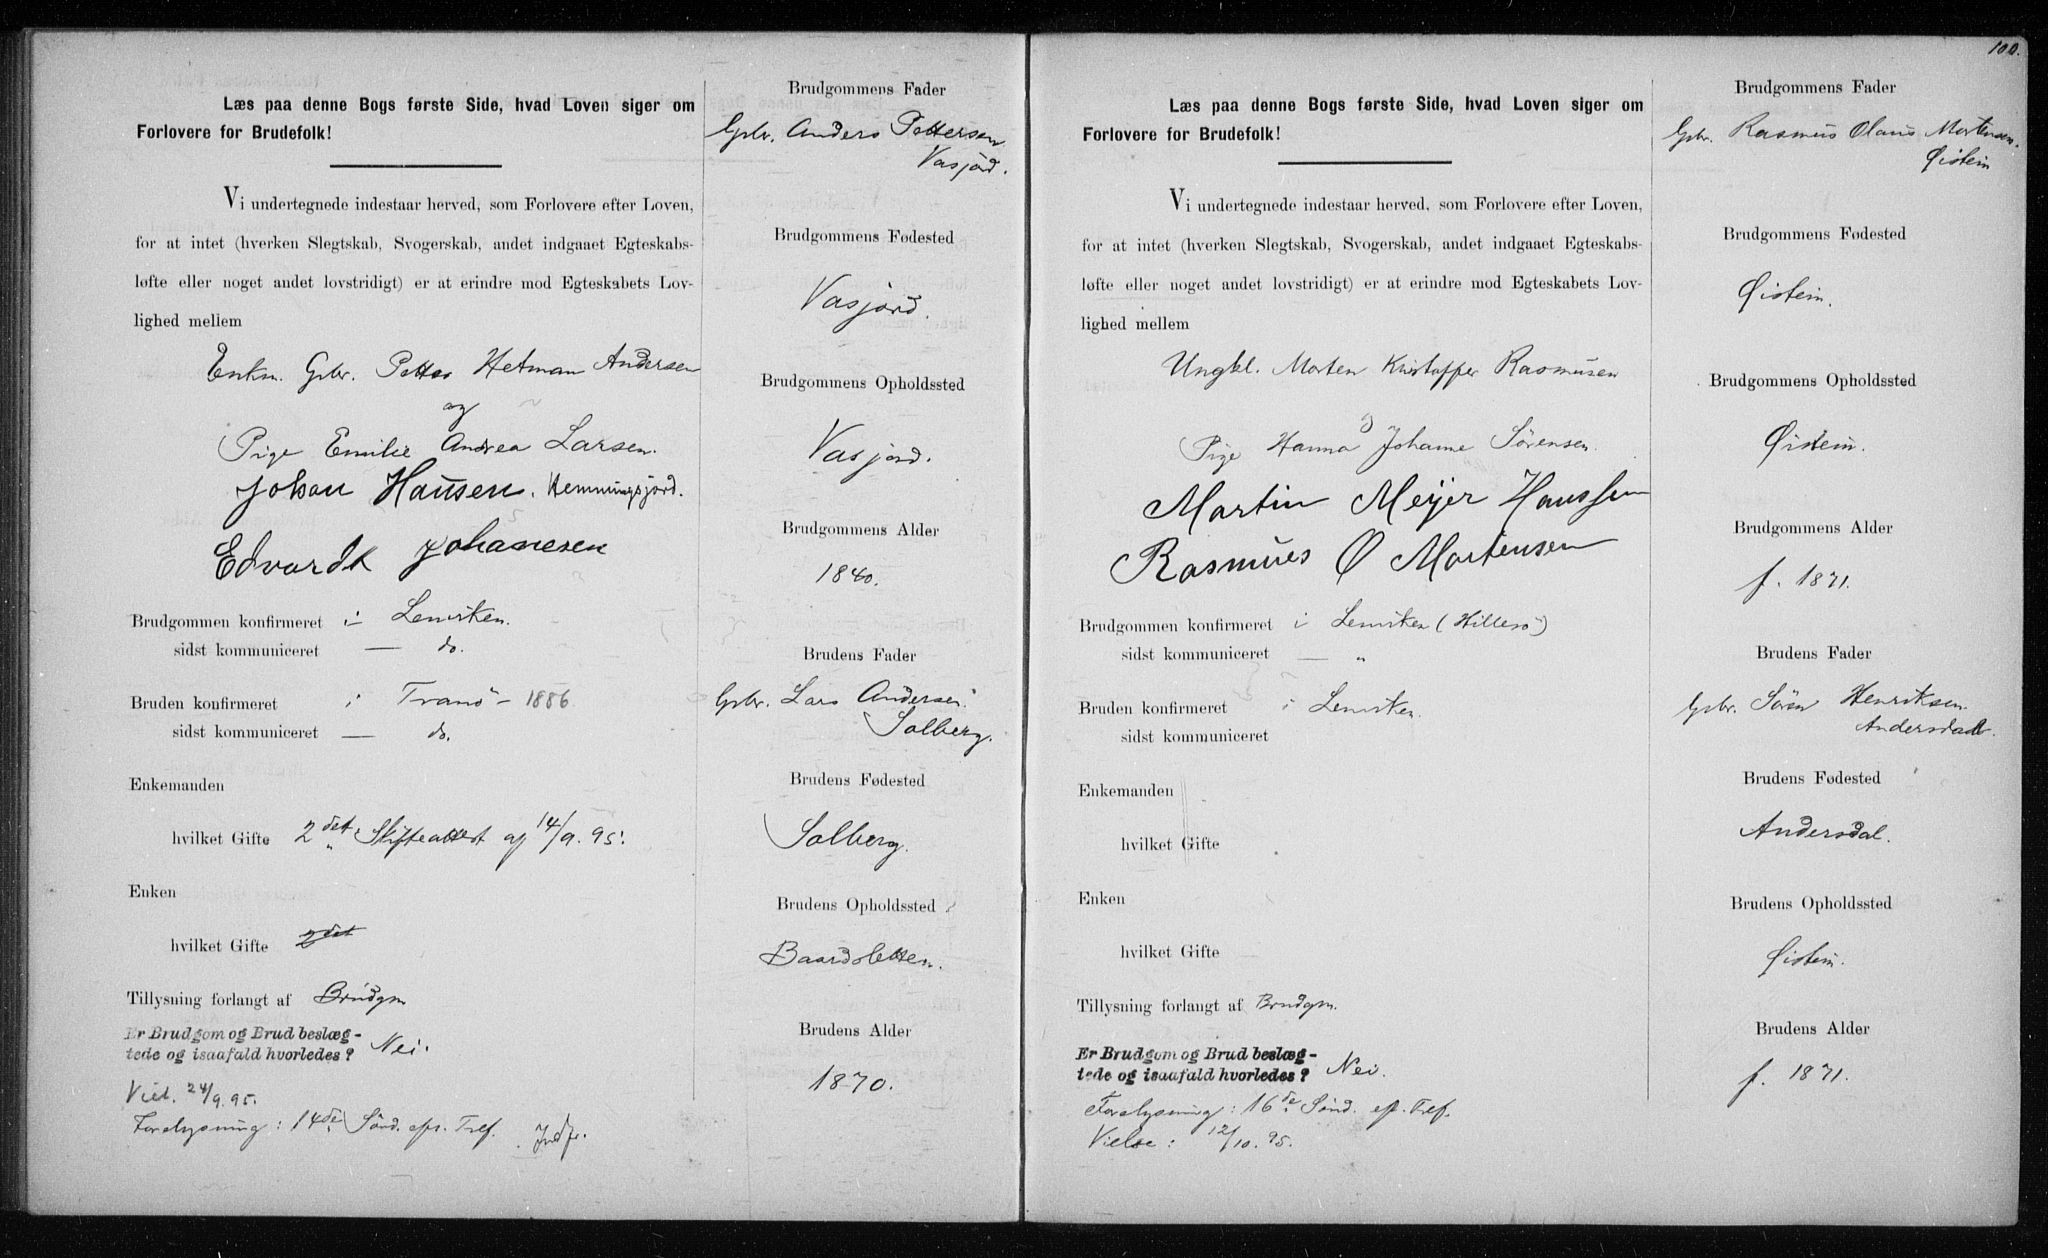 Læs paa denne Bogs første Side, hvad Loven siger om
Forlovere for Brudefolk!
Vi undertegnede indestaar herved, som Forlovere efter Loven,
for at intet (hverken Slegtskab, Svogerskab, andet indgaaet Egteskabs-
løfte eller noget andet lovstridigt) er at erindre mod Egteskabets Lov-
lighed mellem
Enkm. Gbr. Petter Hetman Andersen
og
Pige Emilie Andrea Larsen.
Johan Hansen. Hemmingsjord.
Edvardk Johanesen
Brudgommen konfirmeret i Lenviken.
sidst kommuniceret — do.
Bruden konfirmeret i Tranö - 1886
sidst kommuniceret — do.
Enkemanden
hvilket Gifte 2det Skifteattest af 14/9. 95.
Enken
hvilket Gifte 2det
Tillysning forlangt af Brudgm
Er Brudgom og Brud beslæg-
tede og isaafald hvorledes? Nei.
Viet. 24/9. 95.
Forelysning: 14de Sönd. eft. Tref.
Brudgommens Fader
Gbr. Anders Pettersen
Vasjord.
Brudgommens Fødested
Vasjord.
Brudgommens Opholdssted
Vasjord.
Brudgommens Alder
1840.
Brudens Fader
Gbr. Lars Andersen
Solberg.
Brudens Fødested
Solberg.
Brudens Opholdssted
Baardsletten.
Brudens Alder
1870.
100.
Læs paa denne Bogs første Side, hvad Loven siger om
Forlovere for Brudefolk!
Vi undertegnede indestaar herved, som Forlovere efter Loven,
for at intet (hverken Slegtskab, Svogerskab, andet indgaaet Egteskabs-
løfte eller noget andet lovstridigt) er at erindre mod Egteskabets Lov-
lighed mellem
Ungkl. Morten Kristoffer Rasmusen
Pige Hanna Johanne Sörensen.
Martin Meijer Hanssen
Rasmus Ø Mortensen
Brudgommen konfirmeret i Lenviken (Hillesö)
sidst kommuniceret — "
Bruden konfirmeret i Lenviken.
sidst kommuniceret
Enkemanden
hvilket Gifte
Enken
hvilket Gifte
Tillysning forlangt af Brudgm.
Er Brudgom og Brud beslæg-
tede og isaafald hvorledes? Nei.
Forelysning: 16de Sönd. eft. Tref.
Vielse: 12/10. 95.
Brudgommens Fader
Gbr. Rasmus Olaus Mortensen.
Øistein
Brudgommens Fødested
Øistein.
Brudgommens Opholdssted
Øistein.
Brudgommens Alder
f. 1871.
Brudens Fader
Gbr. Sören Henriksen
Andersdal.
Brudens Fødested
Andersdal.
Brudens Opholdssted
Øistein.
Brudens Alder
f. 1871.